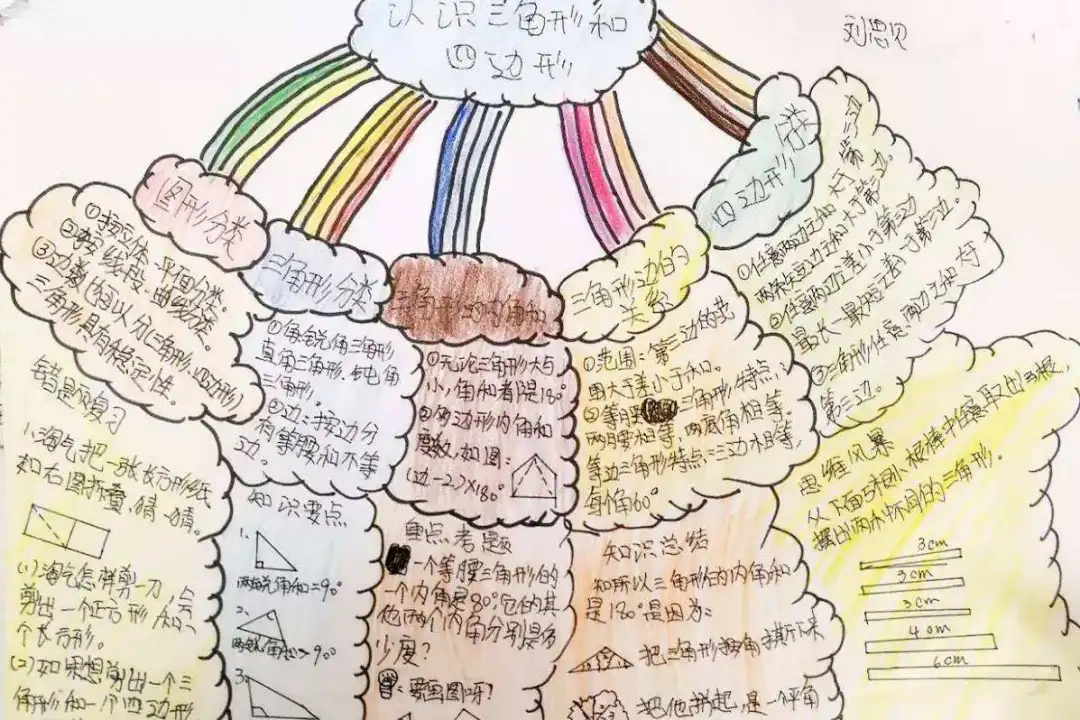 认识三角形和
四边形
刘思贝
图形分类
①按立体、平面分类
②按线段、曲线分类
③边数(也可以分儿三角形、四边形)
三角形具有稳定性。
三角形分类
①角锐角三角形
直角三角形、钝角
三角形。
②边:按边分
有等腰和不等
边。
三角形的内角和
①无论三角形大与
小,角和者阝是180°
②多边形内角和
度数,如图:
(边-2)×180°
三角形边的
关系
①范围:第三边的范
围大于差小于和。
②等腰三角形特点:
两腰相等,两底角相等。
等边三角形特点:三边木相等,
每个角60°
四边形
①任意两边之和大于第三边
②任意两边之差小于第三边
③三角形任意两边之和大于
第三边。
错题复习
1、淘气把一张长方形纸
如右图折叠,猜一猜。
(1)淘气怎样剪一刀,会
剪出一个正方形和一
个长方形。
(2)如果想剪出一个三
角形和一个四边形
知识要点
1、
两锐角和=90°
2、
两锐角和>90°
3、
重点考题
一个等腰三角形的
一个内角是80°,它的其
他两个内角分别是多
少度?
:要画图呀?
知识总结
知所以三角形的内角和
是180°是因为:
把三角形按角撕下来
把他拼起,是一个平角
思维风暴
从下面5根小棍棒中任意取出3根,
摆出两个不同的三角形。
3cm
3cm
3cm
4cm
6cm